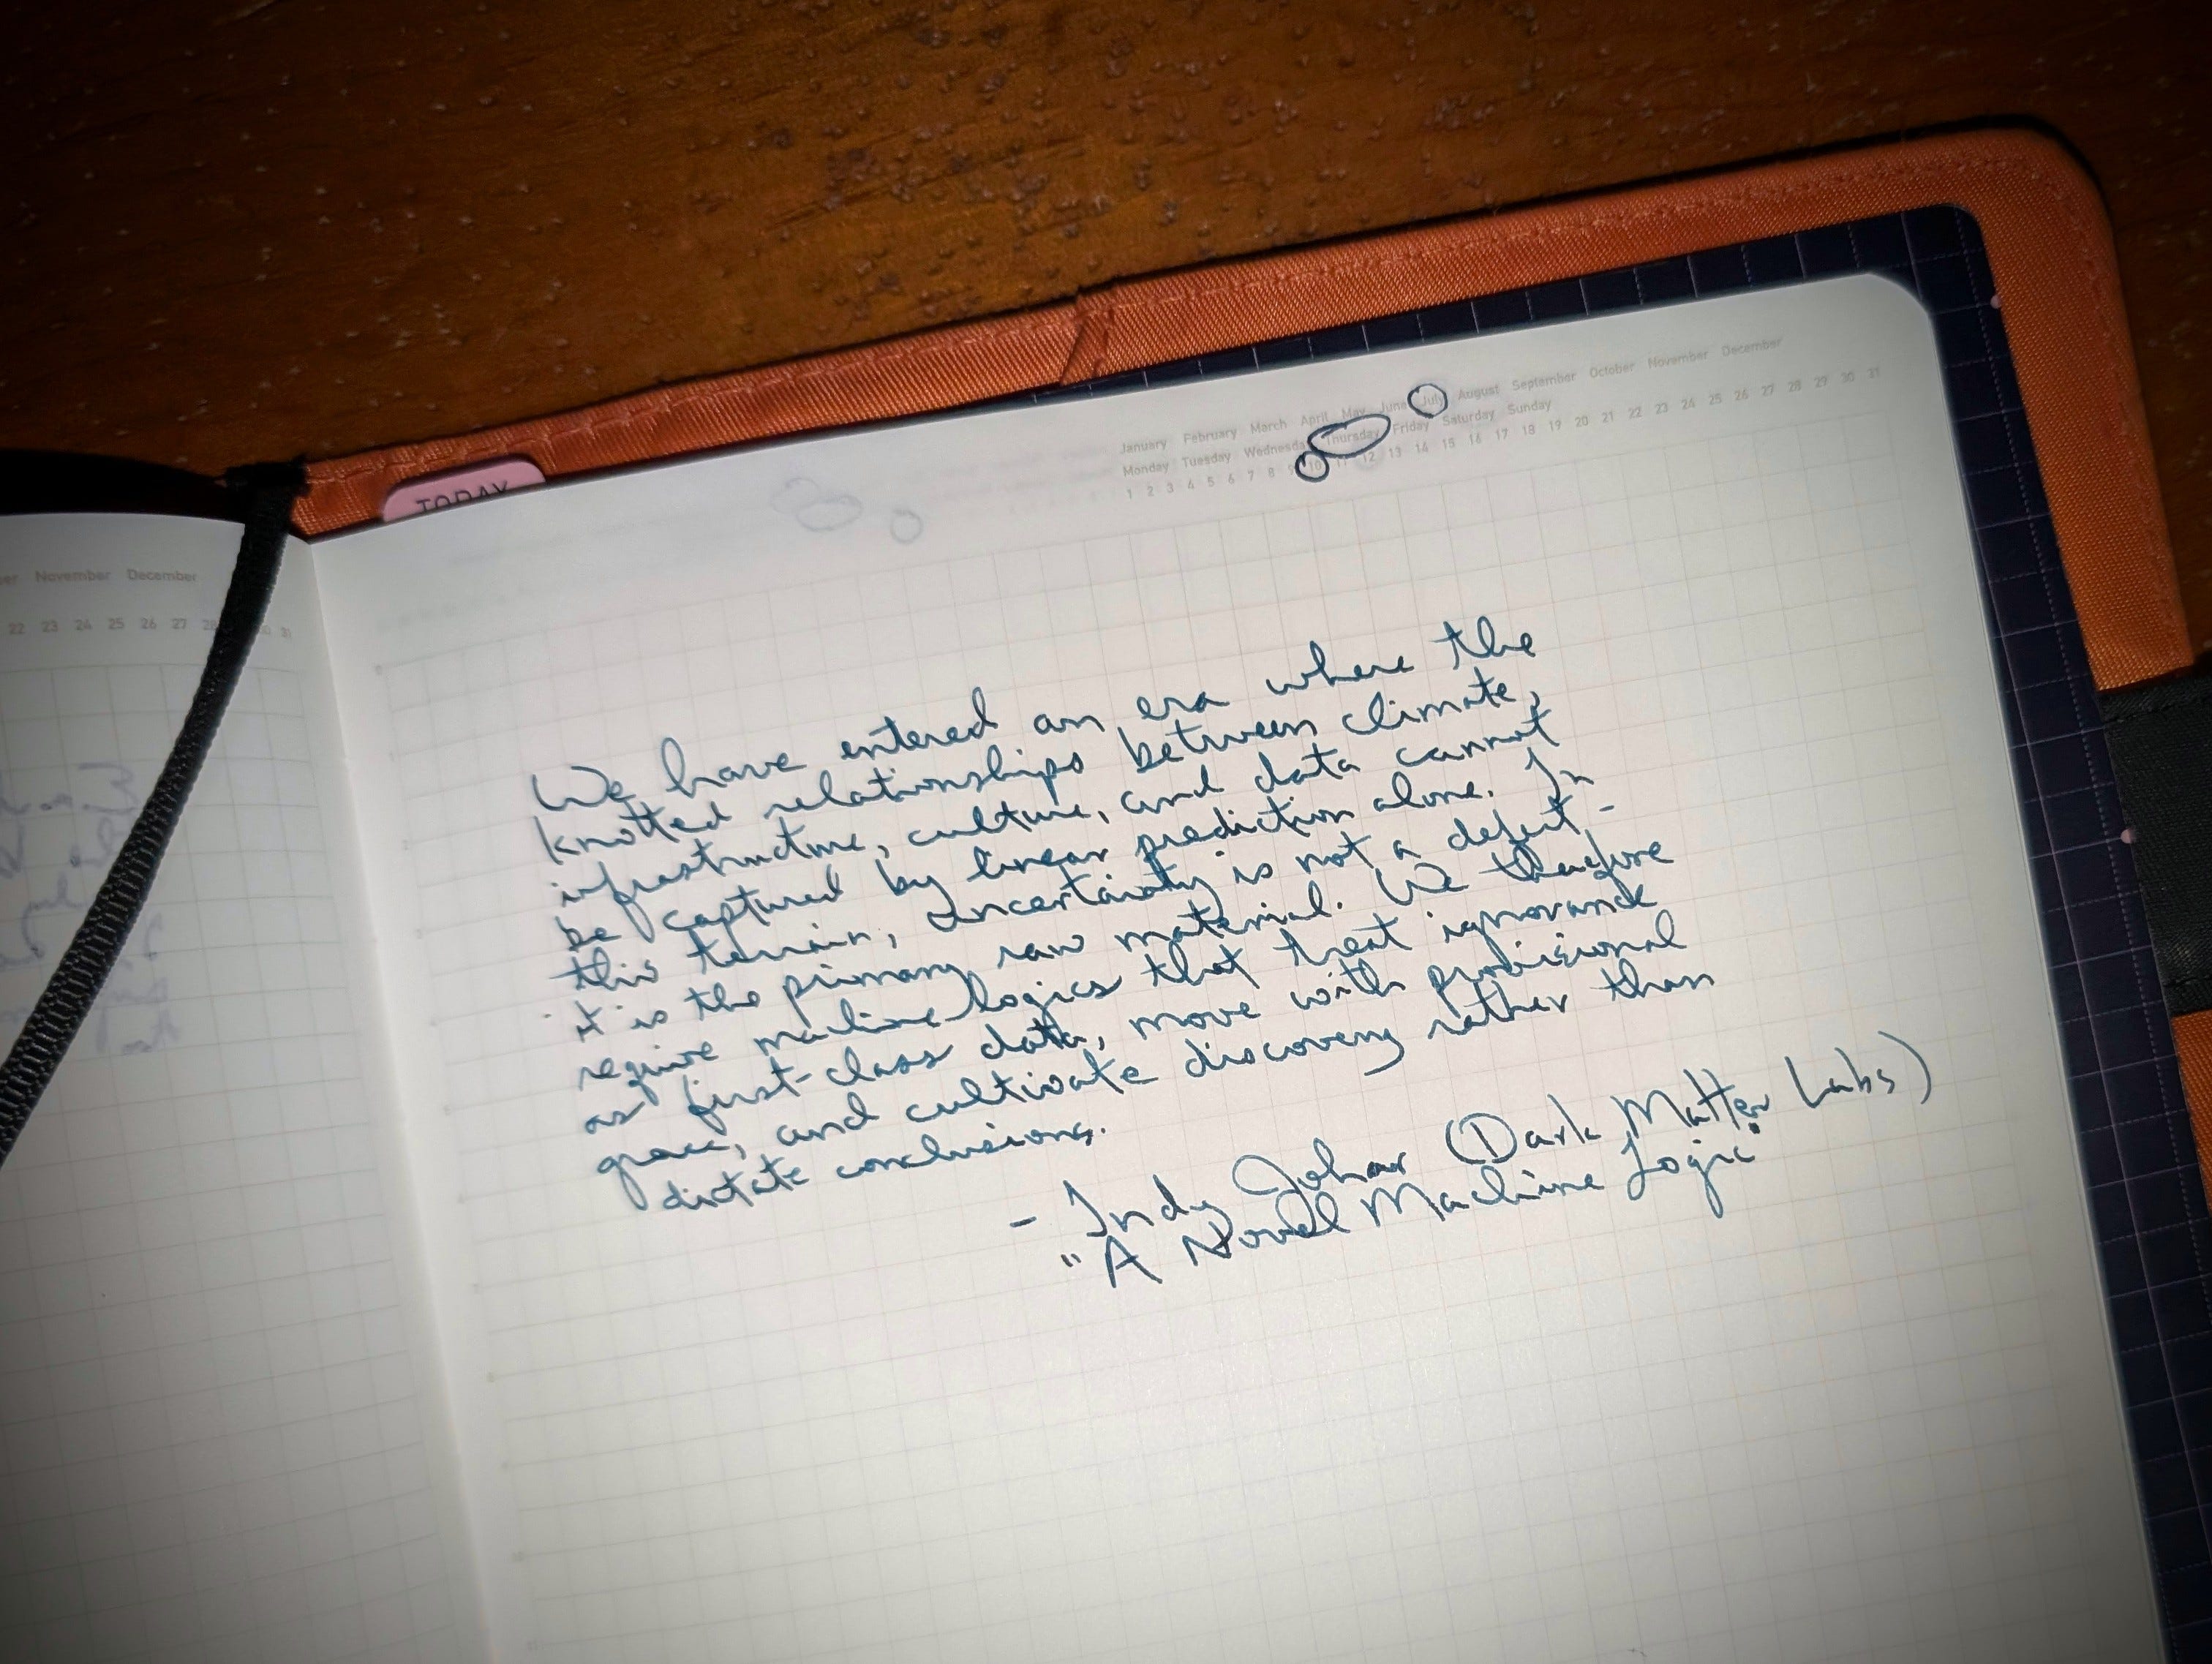 er November December
22 23 24 25 26 27
TODAY
January February March April May June July August September October November December
Monday Tuesday Wednesday Thursday Friday Saturday Sunday
1 2 3 4 5 6 7 8 9 10 11 12 13 14 15 16 17 18 19 20 21 22 23 24 25 26 27 28 29 30 31
We have entered an era where the
knotted relationships between climate,
infrastructure, culture, and data cannot
be captured by linear prediction alone. In
this terrain, uncertainty is not a defect -
it is the primary raw material. We therefore
require machine logics that treat ignorance
as first-class data, move with provisional
grace, and cultivate discovery rather than
dictate conclusions.
- Indy Johar (Dark Matter Labs)
"A Novel Machine Logic"